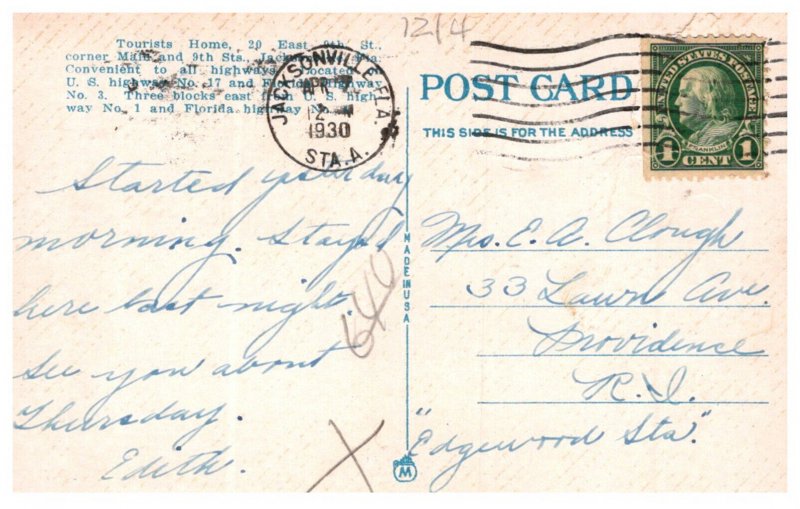 1214
Tourists Home, 20 East 9th St.,
corner Main and 9th Sts., Jacksonville, Fla.
Convenient to all highways. Located
U. S. highway No. 17 and Florida highway
No. 3. Three blocks east from U. S. high-
way No. 1 and Florida highway No.
JACKSONVILLE, FLA.
APR
12 M
1930
STA. A.
POST CARD
THIS SIDE IS FOR THE ADDRESS
UNITED STATES POSTAGE
FRANKLIN
1 CENT 1
Started yesterday
morning. Stayed
here last night.
See you about
Thursday.
Edith.
640
X
MADE IN USA
Mrs. E. A. Clough
33 Lawn Ave.
Providence
R. I.
"Edgewood Sta."
M